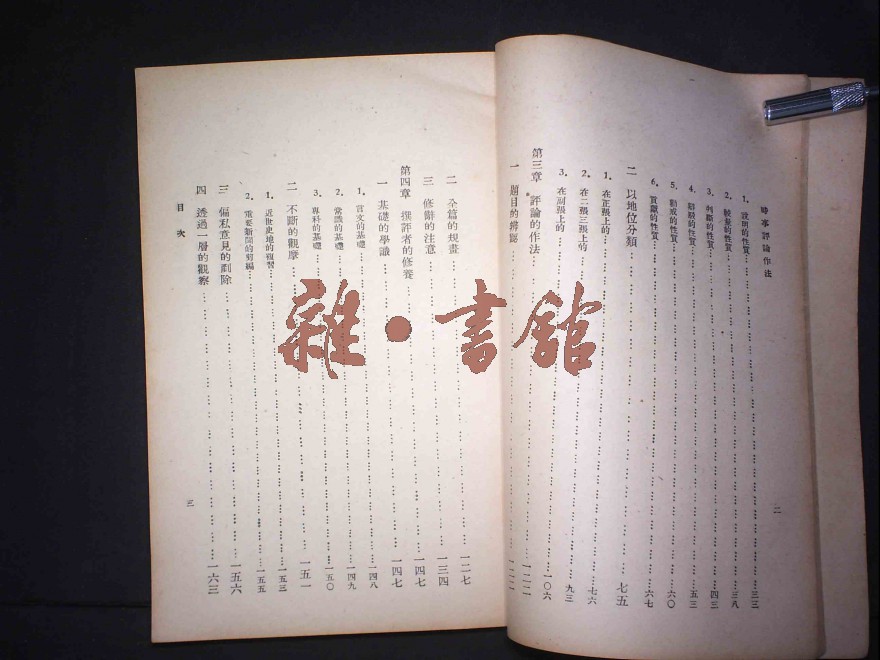 時事評論作法
1. 說明的性質……三三
2. 較量的性質……三八
3. 判斷的性質……四三
4. 辯駁的性質……五三
5. 勸戒的性質……六〇
6. 貢獻的性質……六七
二 以地位分類……七五
1. 在正張上的……
2. 在二張三張上的……七六
3. 在副張上的……九三
第三章 評論的作法……一〇六
一 題目的辨認……一二一
二
二 全篇的規畫……一二七
三 修辭的注意……一三四
第四章 撰評者的修養……一四七
一 基礎的學識……一四七
1. 言文的基礎……一四八
2. 常識的基礎……一四九
3. 專科的基礎……一五〇
二 不斷的觀摩……一五一
1. 近世史地的複習……一五三
2. 重要新聞的剪編……一五五
三 偏私意見的剷除……一五六
四 透過一層的觀察……一六三
目次
三
雜·書館